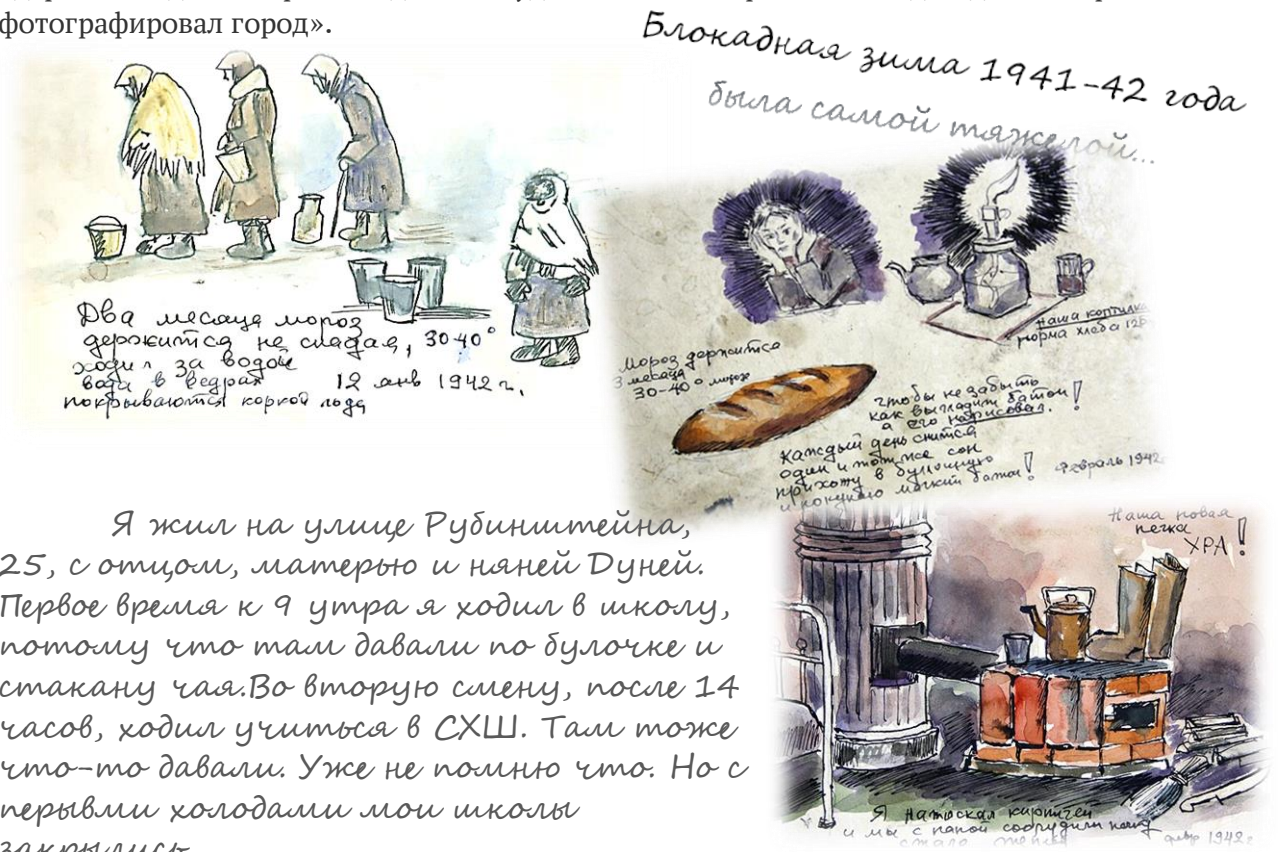 фотографировал город».
Блокадная зима 1941-42 года
была самой тяжелой...
Два месяца мороз
держится не спадая, 30-40°
ходил за водой
вода в ведрах 12 янв 1942 г.
покрываются коркой льда
Наша коптилка
норма хлеба 125
Мороз держится
3 месяца
30-40° мороз
чтобы не забыть
как выглядит батон!
я его нарисовал.
Каждый день снится
один и тот же сон
прихожу в булочную
и покупаю мягкий батон! февраль 1942
Я жил на улице Рубинштейна,
25, с отцом, матерью и няней Дуней.
Первое время к 9 утра я ходил в школу,
потому что там давали по булочке и
стакану чая.Во вторую смену, после 14
часов, ходил учиться в СХШ. Там тоже
что-то давали. Уже не помню что. Но с
перывми холодами мои школы
закрылись
Наша новая
печка
УРА!
Я натаскал кирпичей
и мы с папой соорудили печку
стало теплей февр 1942г